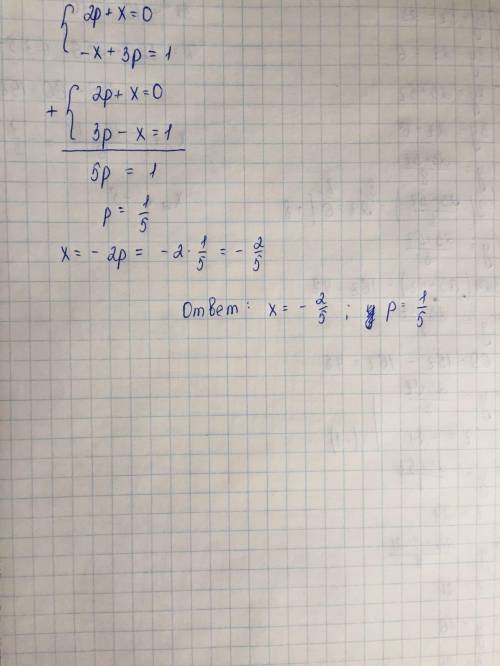 { 2p + x = 0
-x + 3p = 1
+ { 2p + x = 0
3p - x = 1
5p = 1
p = 1/5
x = - 2p = - 2 · 1/5 = - 2/5
Ответ: x = - 2/5 ; p = 1/5